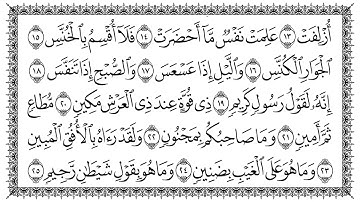 أُزْلِفَتْ ١٣ عَلِمَتْ نَفْسٌ مَّآ أَحْضَرَتْ ١٤ فَلَآ أُقْسِمُ بِٱلْخُنَّسِ ١٥
ٱلْجَوَارِ ٱلْكُنَّسِ ١٦ وَٱلَّيْلِ إِذَا عَسْعَسَ ١٧ وَٱلصُّبْحِ إِذَا تَنَفَّسَ ١٨
إِنَّهُۥ لَقَوْلُ رَسُولٍ كَرِيمٍ ١٩ ذِى قُوَّةٍ عِندَ ذِى ٱلْعَرْشِ مَكِينٍ ٢٠ مُّطَاعٍ
ثَمَّ أَمِينٍ ٢١ وَمَا صَاحِبُكُم بِمَجْنُونٍ ٢٢ وَلَقَدْ رَءَاهُ بِٱلْأُفُقِ ٱلْمُبِينِ
٢٣ وَمَا هُوَ عَلَى ٱلْغَيْبِ بِضَنِينٍ ٢٤ وَمَا هُوَ بِقَوْلِ شَيْطَٰنٍ رَّجِيمٍ ٢٥